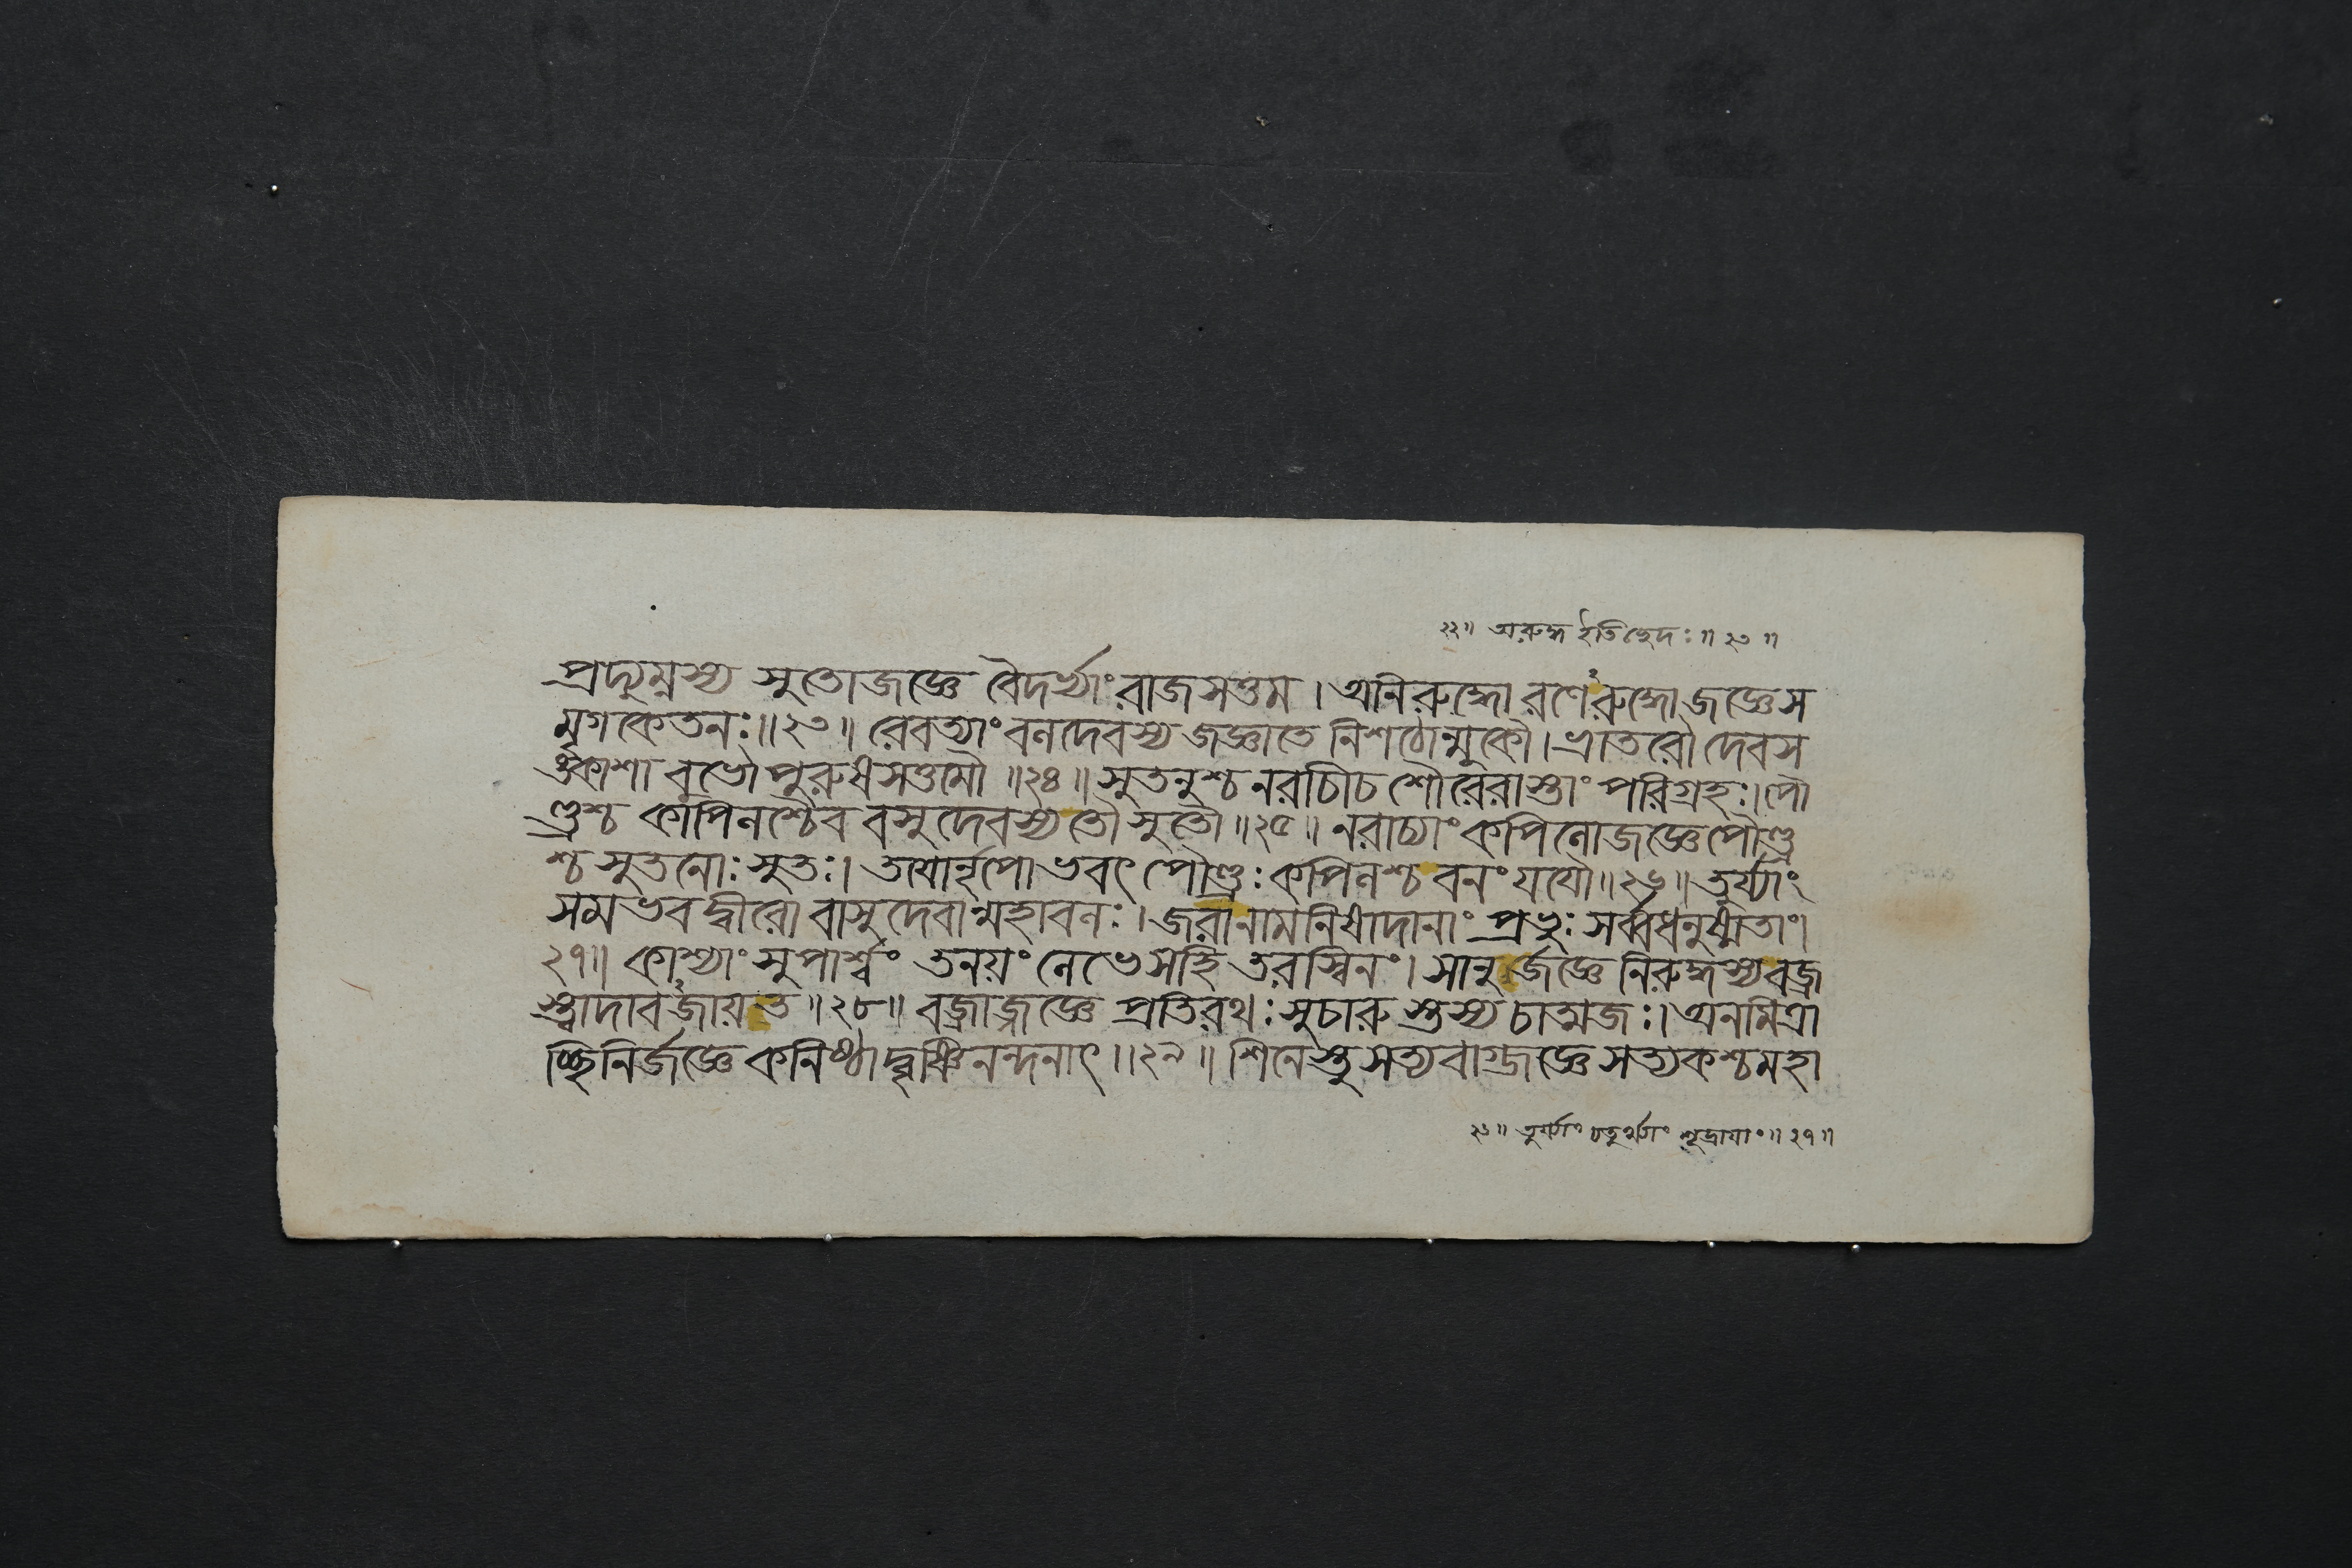 ২২॥ অরুদ্ধ ইতিচ্ছেদঃ॥২৩॥
প্রদ্যুম্নস্য সুতোজজ্ঞে বৈদর্ভ্যাং রাজসত্তম। অনিরুদ্ধো রণেঽরুদ্ধোজজ্ঞেস
মৃগকেতনঃ॥২৩॥ রেবত্যাং বলদেবস্য জজ্ঞাতে নিশঠোল্মুকৌ। ভ্রাতরৌ দেবস
ঙ্কাশা বুভৌ পুরুষসত্তমৌ॥২৪॥ সুতনুশ্চ নরাচীচ শৌরেরাস্তাং পরিগ্রহঃ। পৌ
ণ্ড্রশ্চ কপিলশ্চৈব বসুদেবস্য তৌ সুতৌ॥২৫॥ নরাচ্যাং কপিলোজজ্ঞে পৌণ্ড্র
শ্চ সুতনোঃ সুতঃ। তয়োর্নৃপোভবৎ পৌণ্ড্রঃ কপিলশ্চ বনং যযৌ॥২৬॥ তুর্য্যাং
সমভবদ্বীরো বাসুদেবান্মহাবলঃ। জরানামনিষাদানাং প্রভুঃ সর্ব্বধনুষ্মতাং।
২৭॥ কাশ্যাং সুপার্শ্বং তনয়ং লেভেসাহি তরস্বিনং। সানুর্জজ্ঞে নিরুদ্ধস্য বজ্র
স্ত্বাদাবঽজায়ত॥২৮॥ বজ্রাজ্জজ্ঞে প্রতিরথঃ সুচারুস্তস্য চাত্মজঃ। অনমিত্রা
চ্ছিনির্জজ্ঞে কনিষ্ঠাদ্বৃষ্ণিনন্দনাৎ॥২৯॥ শিনেস্তু সত্যবাগ্জজ্ঞে সত্যকশ্চ মহা
২৬॥ তুর্য্যাং চতুর্থ্যাং শূদ্রায়াং॥২৭॥